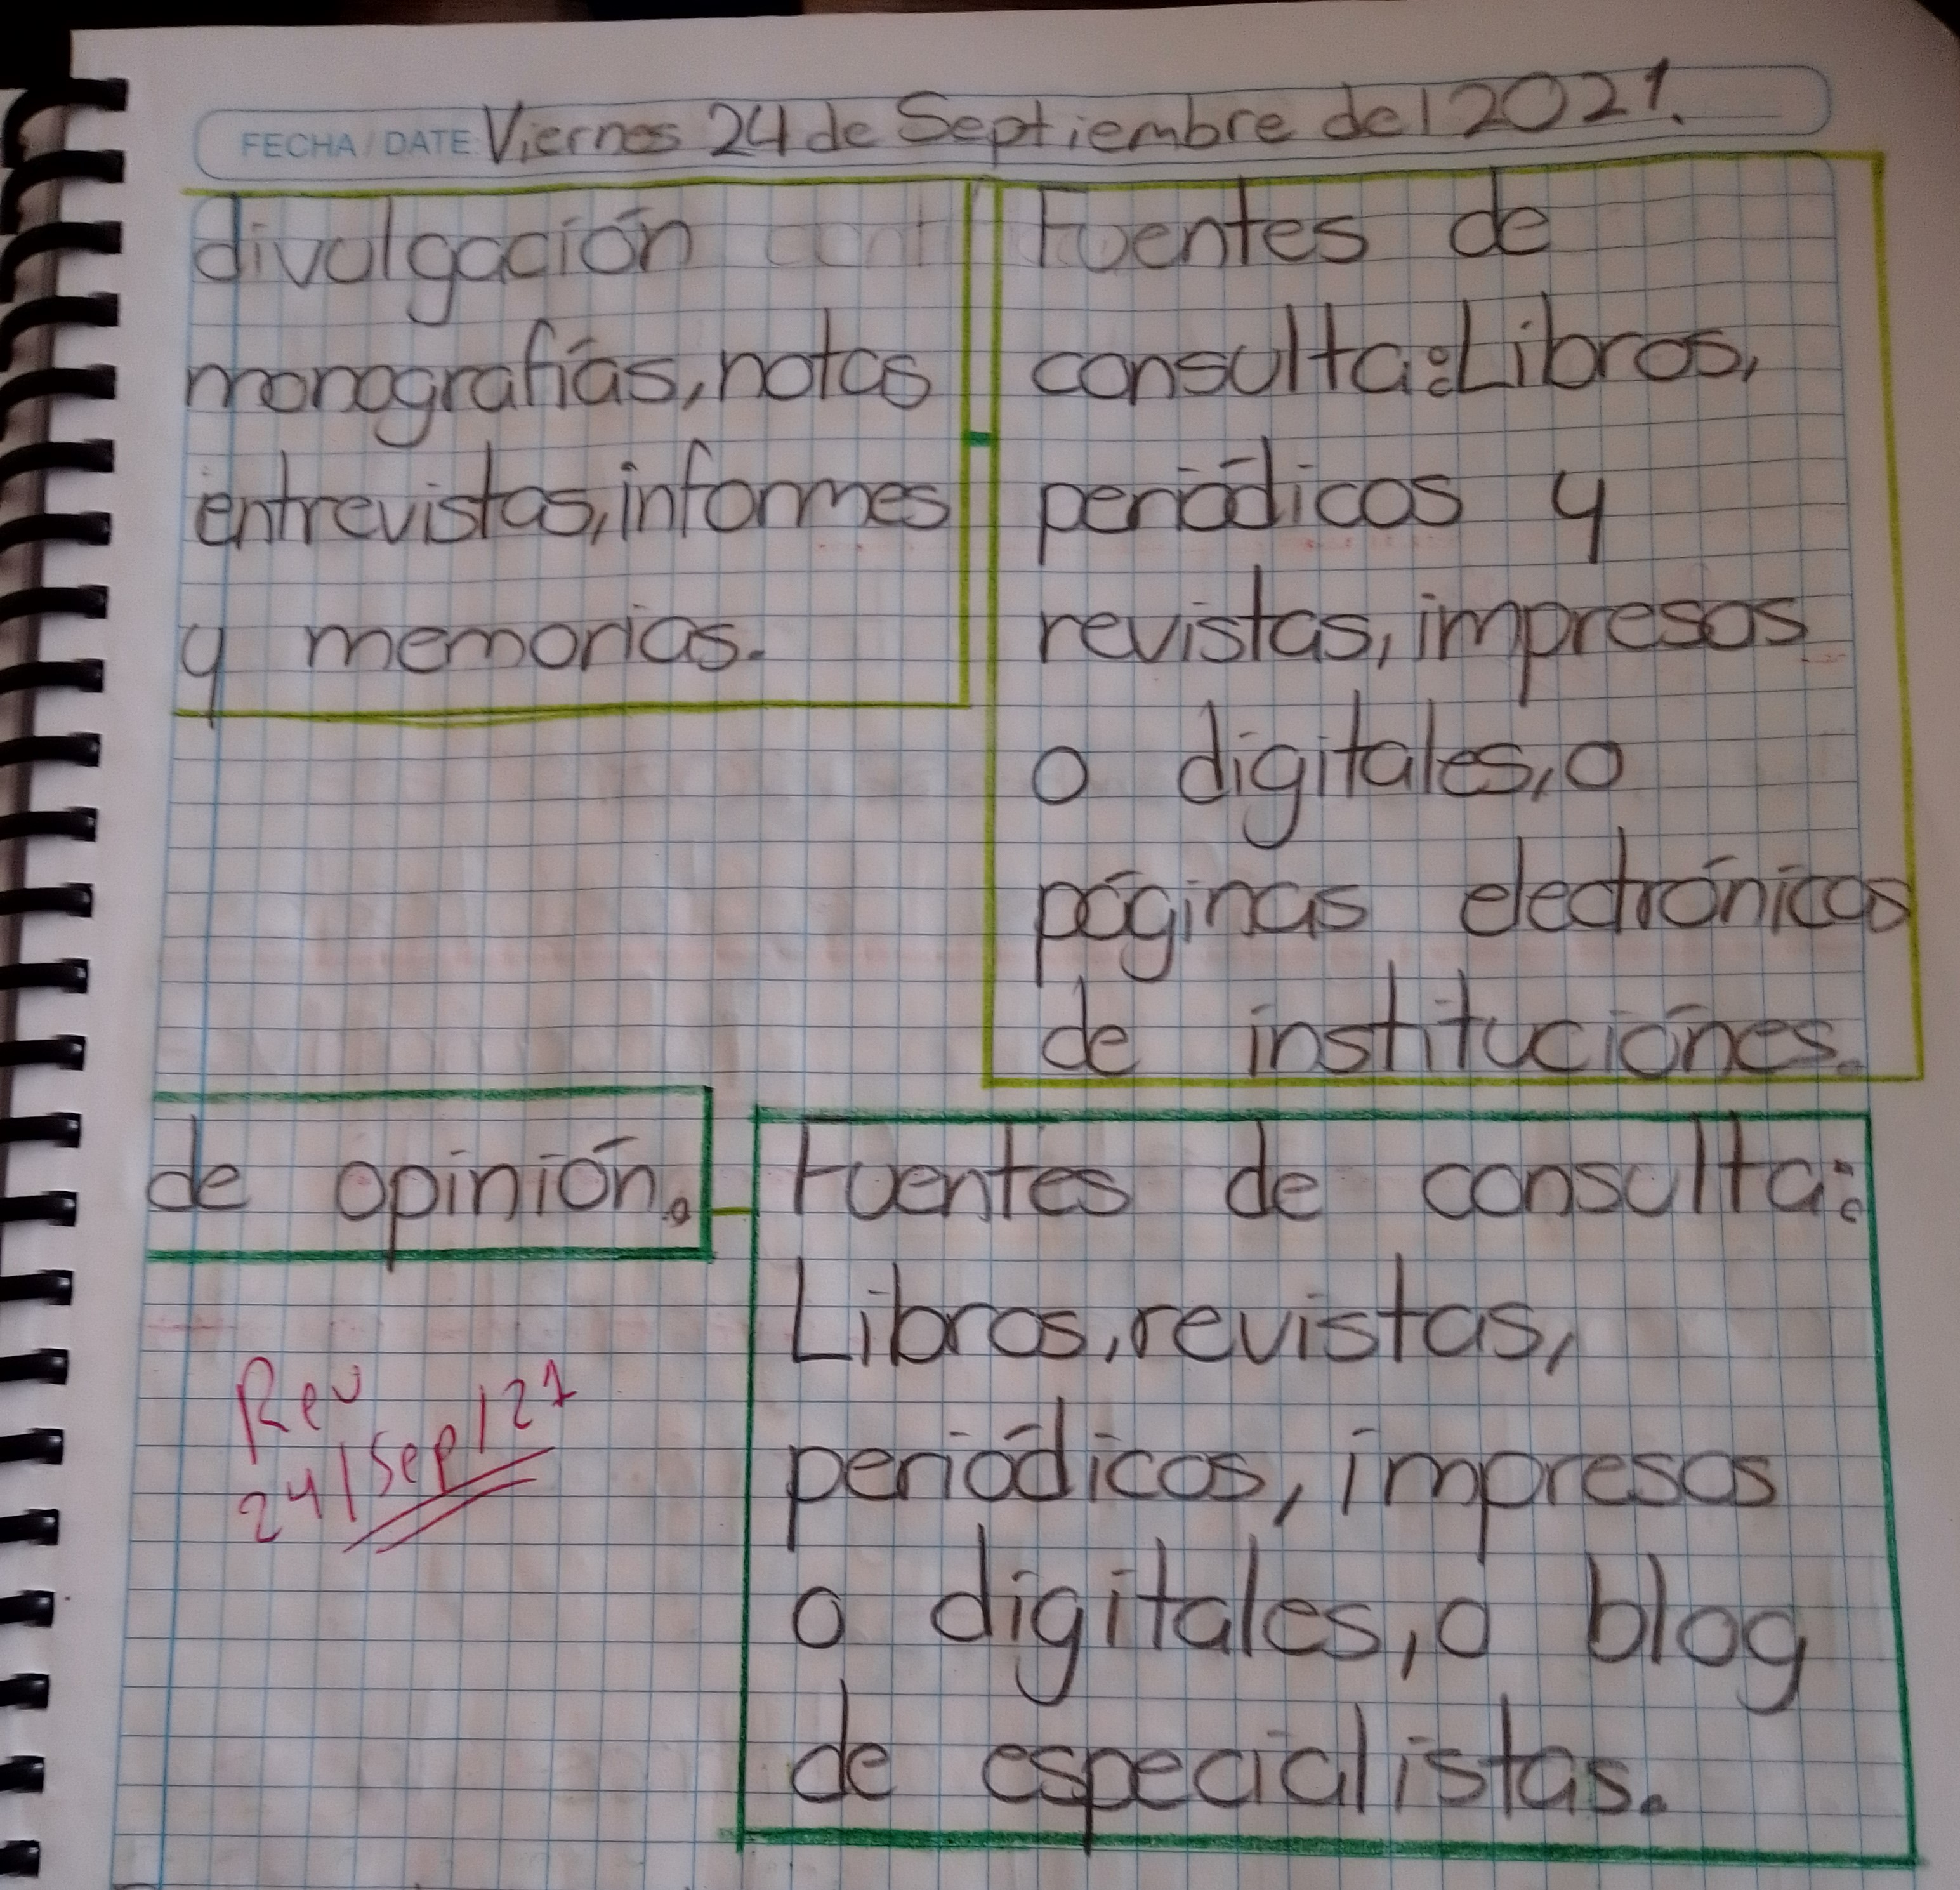 FECHA/DATE Viernes 24 de Septiembre del 2021.
divulgación
monografías, notas
entrevistas, informes
y memorias.
Fuentes de
consulta: Libros,
periódicos y
revistas, impresos
o digitales, o
páginas electrónicas
de instituciónes.
de opinión.
Fuentes de consulta:
Libros, revistas,
periódicos, impresos
o digitales, o blog
de especialistas.
Rev
24/Sep/21